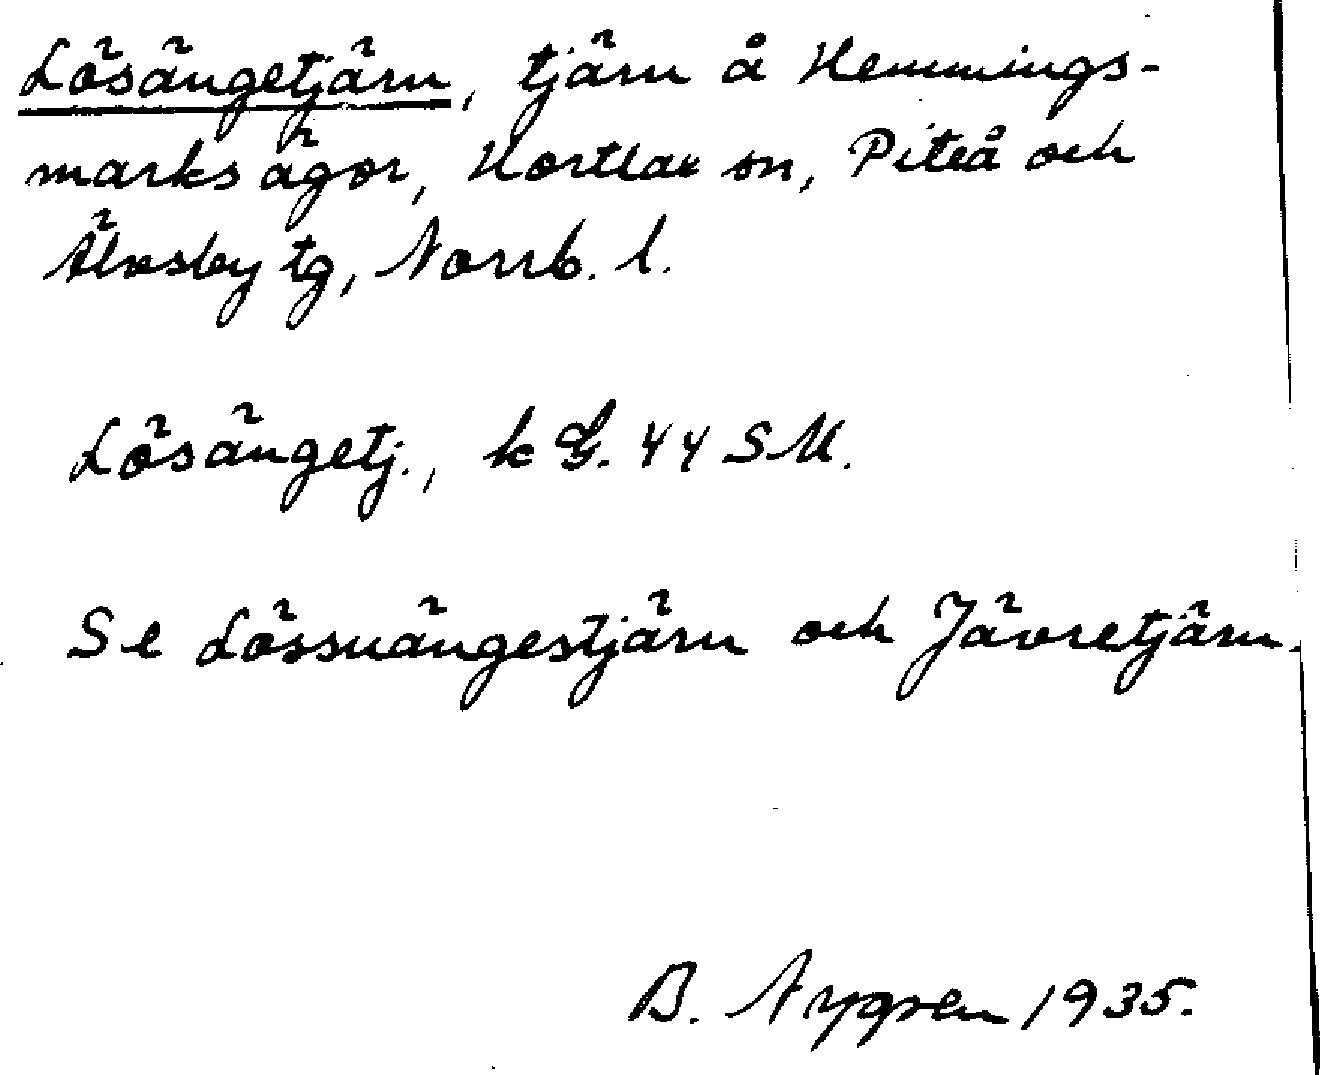 Lösängetjärn, tjärn å Hemmings-
marks ägor, Hortlax sn, Piteå och
Älvsby tg, Norrb. l.
Lösängetj., k G. 44 SU.
Se Lössuängestjärn och Jävretjärn.
B. Nygren 1935.